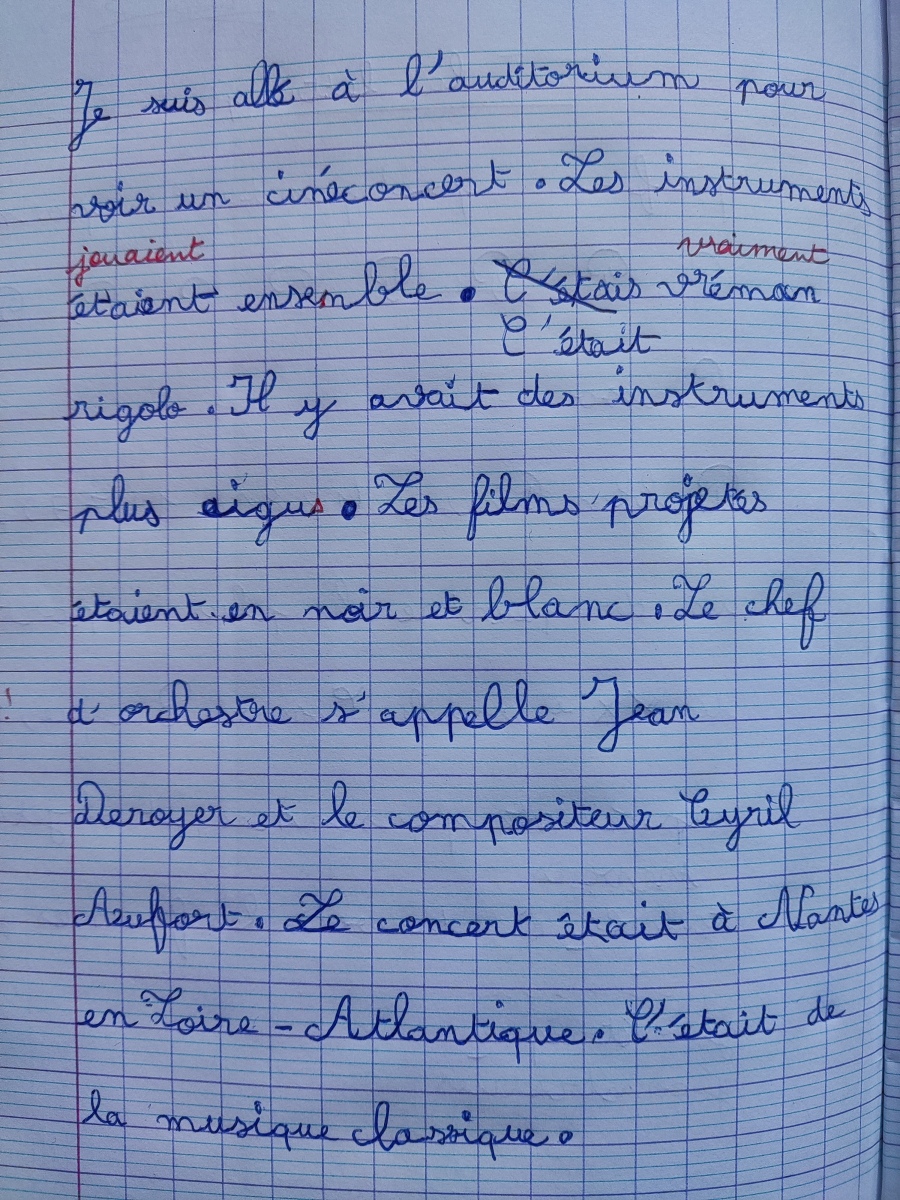 Je suis allé à l'auditorium pour
voir un cinéconcert. Les instruments
jouaient vraiment
étaient ensemble. C'étais vréman
C'était
rigolo. Il y avait des instruments
plus aigus. Les films projetés
étaient en noir et blanc. Le chef
! d'orchestre s'appelle Jean
Deroyer et le compositeur Cyril
Aufort. Le concert était à Nantes
en Loire-Atlantique. C'était de
la musique classique.